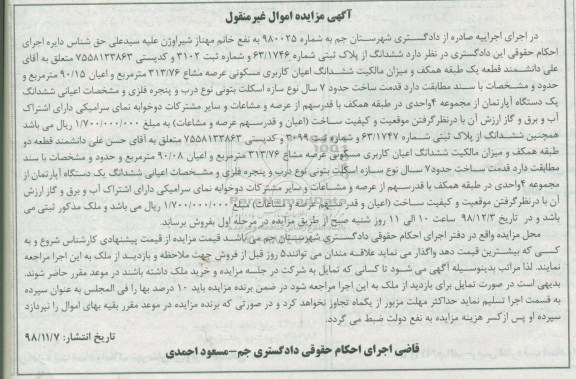 آگهی مزایده اموال غیرمنقول
در اجرای اجراییه صادره از دادگستری شهرستان جم به شماره ۹۸۰۰۲۵ به نفع خانم مهناز شیراوژن علیه سیدعلی حق شناس دایره اجرای
احکام حقوقی این دادگستری در نظر دارد ششدانگ از پلاک ثبتی شماره ۶۳/۱۷۴۶ و شماره ثبت ۳۱۰۲ و کدپستی ۷۵۵۸۱۳۳۸۶۳ متعلق به آقای
علی دانشمند قطعه یک طبقه همکف و میزان مالکیت ششدانگ اعیان کاربری مسکونی عرصه مشاع ۳۱۳/۷۶ مترمربع و اعیان ۹۰/۱۵ مترمربع و
حدود و مشخصات با سند مطابقت دارد قدمت ساخت حدود ۷ سال نوع سازه اسکلت بتونی نوع درب و پنجره فلزی و مشخصات اعیانی ششدانگ
یک دستگاه آپارتمان از مجموعه ۴واحدی در طبقه همکف با قدرسهم از عرصه و مشاعات و سایر مشترکات دوخوابه نمای سرامیکی دارای اشتراک
آب و برق و گاز ارزش آن با درنظرگرفتن موقعیت و کیفیت ساخت (اعیان و قدرسهم عرصه و مشاعات) به مبلغ ۱/۷۰۰/۰۰۰/۰۰۰ ریال می باشد
همچنین ششدانگ از پلاک ثبتی شماره ۶۳/۱۷۴۷ و شماره ثبت ۳۰۹۹ و کدپستی ۷۵۵۸۱۳۳۸۶۳ متعلق به آقای حسن علی دانشمند قطعه دو
طبقه همکف و میزان مالکیت ششدانگ اعیان کاربری مسکونی عرصه مشاع ۳۱۳/۷۶ مترمربع و اعیان ۹۰/۰۸ مترمربع و حدود و مشخصات با سند
مطابقت دارد قدمت ساخت حدود۷ سال نوع سازه اسکلت بتونی نوع درب و پنجره فلزی و مشخصات اعیانی ششدانگ یک دستگاه آپارتمان از
مجموعه ۴واحدی در طبقه همکف با قدرسهم از عرصه و مشاعات و سایر مشترکات دوخوابه نمای سرامیکی دارای اشتراک آب و برق و گاز ارزش
آن با درنظرگرفتن موقعیت و کیفیت ساخت (اعیان و قدرسهم عرصه و مشاعات) مبلغ ۱/۷۰۰/۰۰۰/۰۰۰ ریال می باشد و ملک مذکور ثبتی می
باشد و در تاریخ ۹۸/۱۲/۳ ساعت ۱۰ الی ۱۱ روز شنبه صبح از طریق مزایده در مرحله اول بفروش برساند.
محل مزایده واقع در دفتر اجرای احکام حقوقی دادگستری شهرستان جم می باشد قیمت مزایده از قیمت پیشنهادی کارشناس شروع و به
کسی که بیشترین قیمت دهد واگذار می نماید علاقه مندان می توانند۵ روز قبل از فروش جهت ملاحظه و بازدید از ملک به این اجرا مراجعه
نمایند. لذا مراتب بدینوسیله آگهی می شود تا کسانی که تمایل به شرکت در جلسه مزایده و خرید ملک داشته باشند در موعد مقرر حاضر شوند.
بدیهی است در صورت تمایل برای بازدید از ملک به این اجرا مراجعه شود در ضمن برنده مزایده باید ۱۰ درصد بها را فی المجلس به عنوان سپرده
به قسمت اجرا تسلیم نماید حداکثر مهلت مزبور از یکماه تجاوز نخواهد کرد و در صورتی که برنده مزایده در موعد مقرر بقیه بهای اموال را نپردازد
سپرده او پس ازکسر هزینه مزایده به نفع دولت ضبط می گردد.
تاریخ انتشار: ۹۸/۱۱/۷
قاضی اجرای احکام حقوقی دادگستری جم-مسعود احمدی